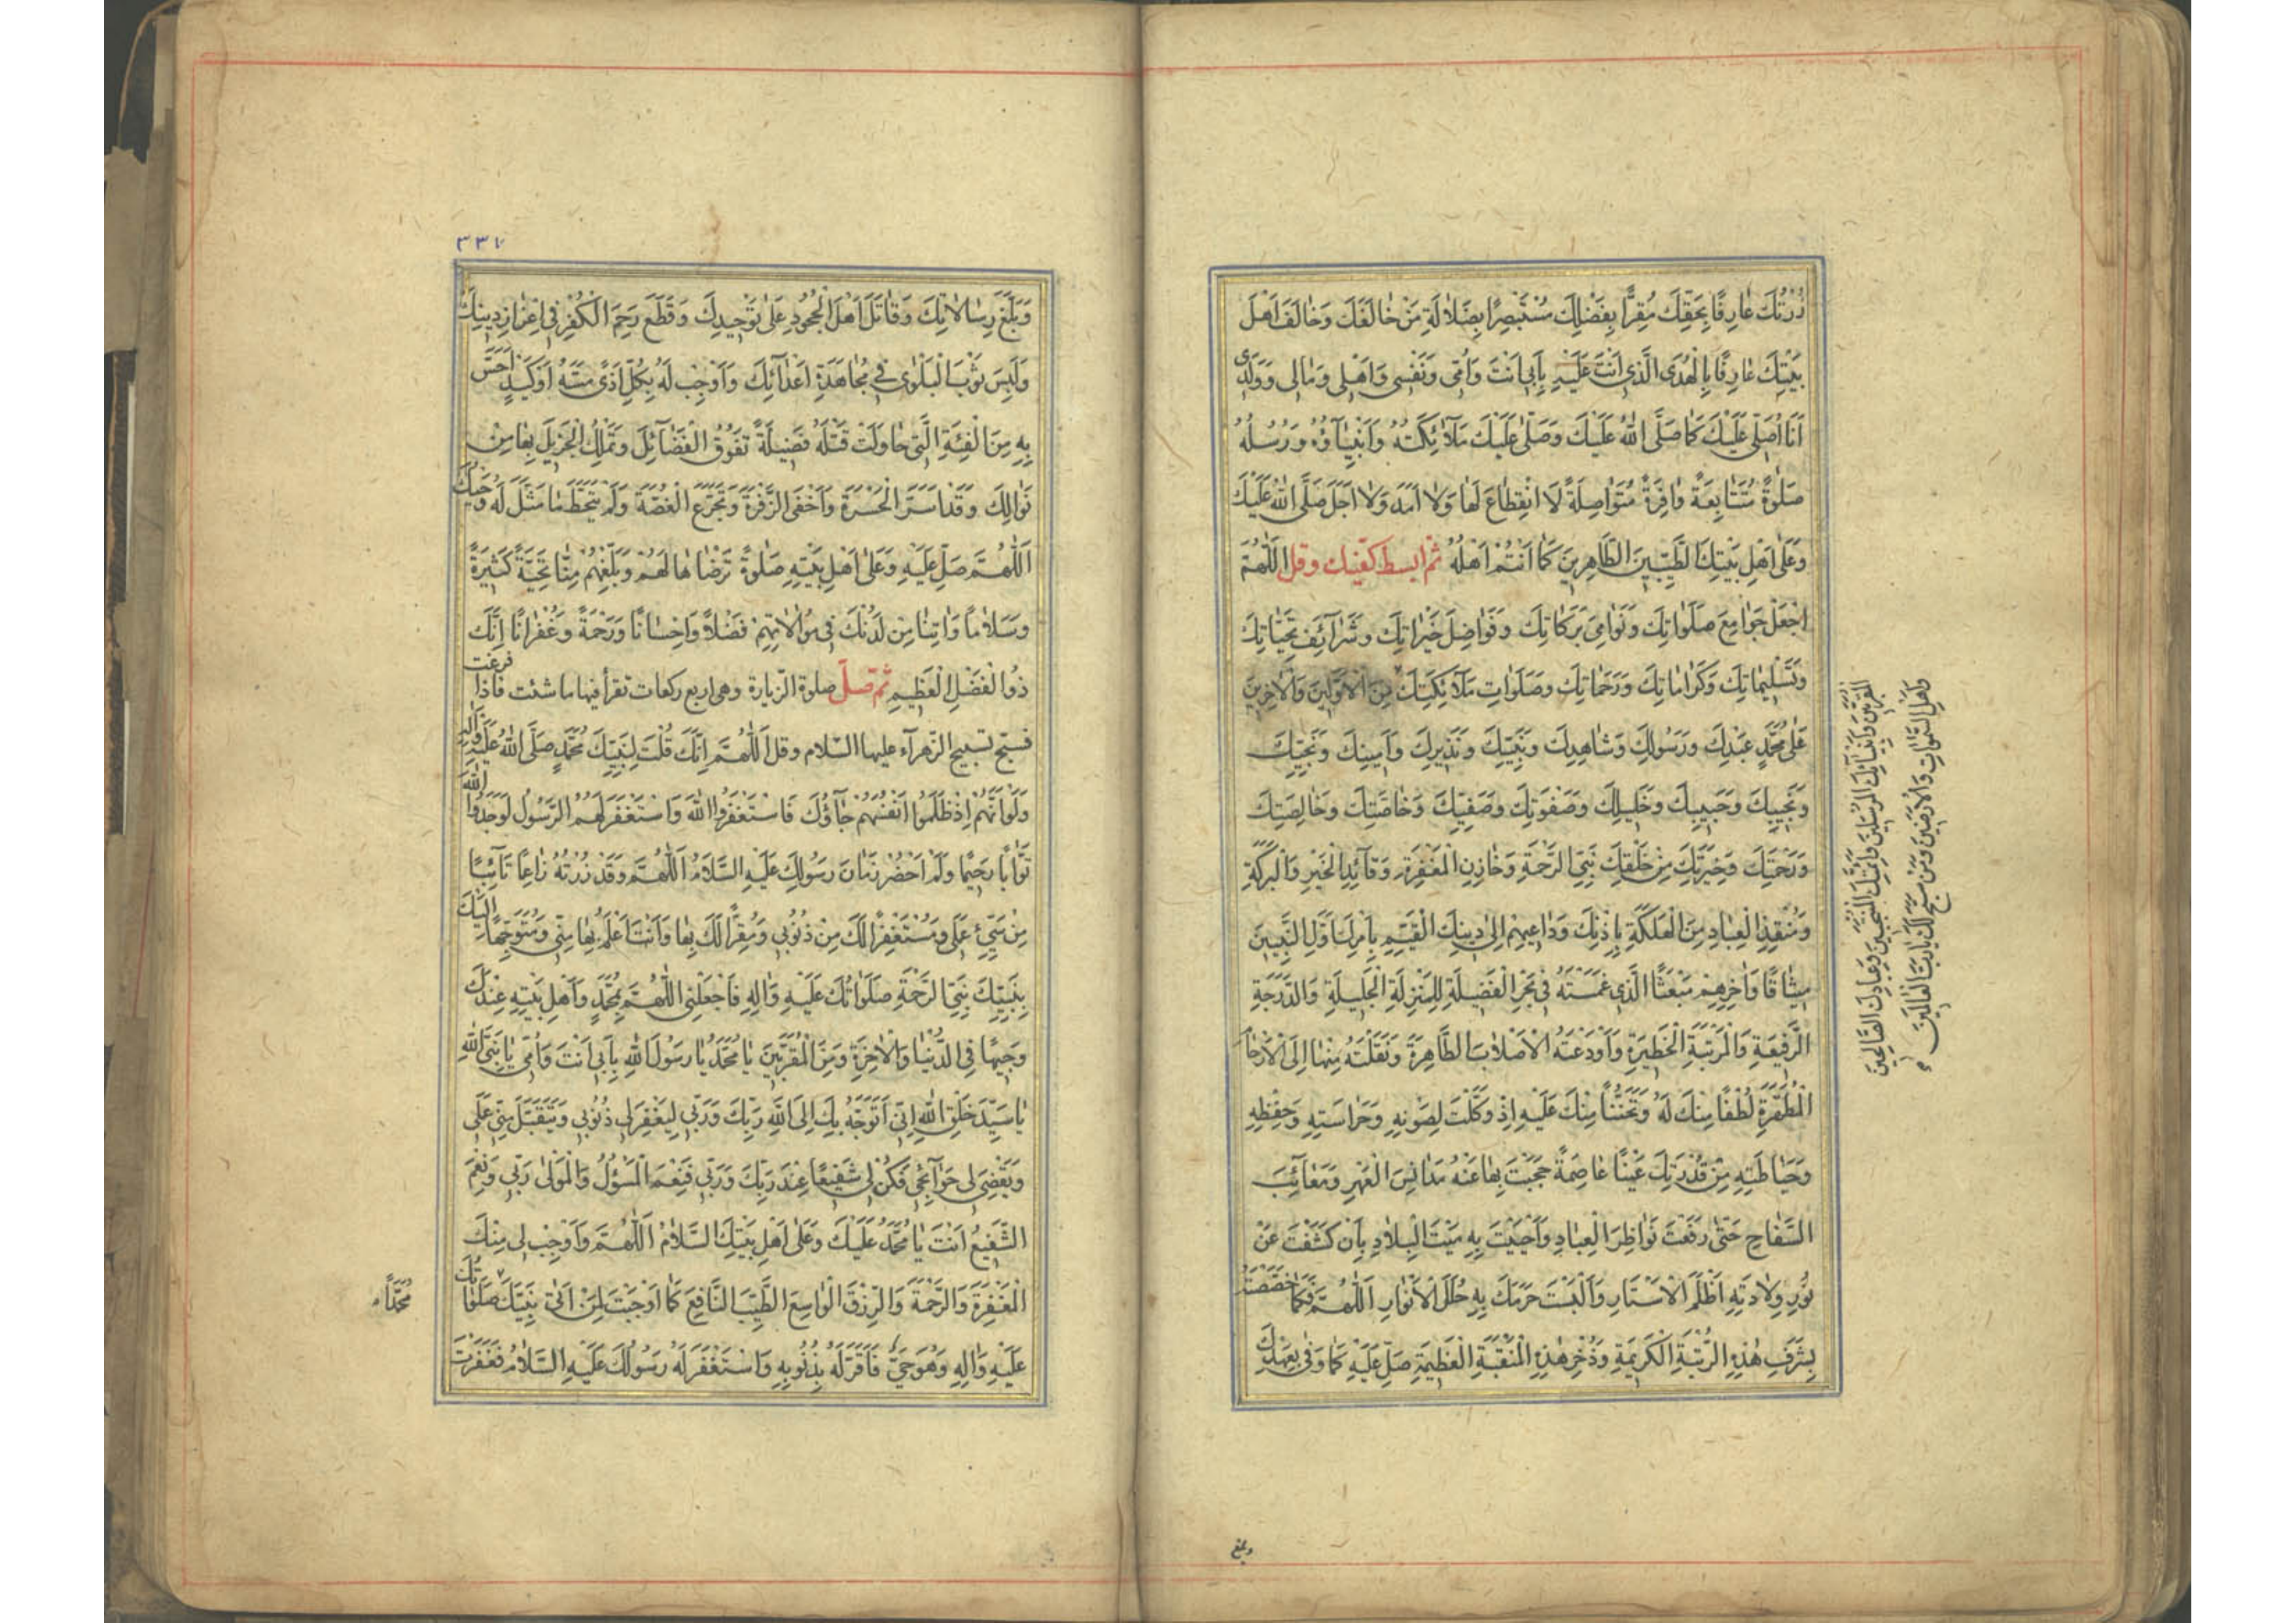 زُرْتُكَ عٰارِفًا بِحَقِّكَ مُقِرًّا بِفَضْلِكَ مُسْتَبْصِرًا بِضَلٰالَةِ مَنْ خٰالَفَكَ وَخٰالَفَ اَهْلَ
بَيْتِكَ عٰارِفًا بِالْهُدَى الَّذِي اَنْتَ عَلَيْهِ بِاَبِي اَنْتَ وَاُمِّي وَنَفْسِي وَاَهْلِي وَمٰالِي وَوَلَدِي
اَنَا اُصَلِّي عَلَيْكَ كَمٰا صَلَّى اللهُ عَلَيْكَ وَصَلّٰى عَلَيْكَ مَلٰائِكَتُهُ وَاَنْبِيٰاؤُهُ وَرُسُلُهُ
صَلٰوةً مُتَتٰابِعَةً وٰافِرَةً مُتَوٰاصِلَةً لَا انْقِطٰاعَ لَهٰا وَلٰا اَمَدَ وَلٰا اَجَلَ صَلَّى اللهُ عَلَيْكَ
وَعَلٰى اَهْلِ بَيْتِكَ الطَّيِّبِينَ الطّٰاهِرِينَ كَمٰا اَنْتُمْ اَهْلُهُ ثم ابسط كفّيك وقل اَللّٰهُمَّ
اجْعَلْ جَوٰامِعَ صَلَوٰاتِكَ وَنَوٰامِيَ بَرَكٰاتِكَ وَفَوٰاضِلَ خَيْرٰاتِكَ وَشَرٰائِفَ تَحِيّٰاتِكَ
وَتَسْلِيمٰاتِكَ وَكَرٰامٰاتِكَ وَرَحَمٰاتِكَ وَصَلَوٰاتِ مَلٰائِكَتِكَ مِنَ الْاَوَّلِينَ وَالْاٰخِرِينَ
الْمُقَرَّبِينَ وَاَنْبِيٰائِكَ الْمُرْسَلِينَ وَاَئِمَّتِكَ الْمُنْتَجَبِينَ وَعِبٰادِكَ الصّٰالِحِينَ
وَاَهْلِ السَّمٰوٰاتِ وَالْاَرَضِينَ وَمَنْ سَبَّحَ لَكَ يٰا رَبَّ الْعٰالَمِينَ
عَلٰى مُحَمَّدٍ عَبْدِكَ وَرَسُولِكَ وَشٰاهِدِكَ وَنَبِيِّكَ وَنَذِيرِكَ وَاَمِينِكَ وَنَجِيِّكَ
وَنَجِيبِكَ وَحَبِيبِكَ وَخَلِيلِكَ وَصَفْوَتِكَ وَصَفِيِّكَ وَخٰاصَّتِكَ وَخٰالِصَتِكَ
وَرَحْمَتِكَ وَخِيَرَتِكَ مِنْ خَلْقِكَ نَبِيِّ الرَّحْمَةِ وَخٰازِنِ الْمَغْفِرَةِ وَقٰائِدِ الْخَيْرِ وَالْبَرَكَةِ
وَمُنْقِذِ الْعِبٰادِ مِنَ الْهَلَكَةِ بِاِذْنِكَ وَدٰاعِيهِمْ اِلٰى دِينِكَ الْقَيِّمِ بِاَمْرِكَ اَوَّلِ النَّبِيّينَ
مِيثٰاقًا وَاٰخِرِهِمْ مَبْعَثًا الَّذِي غَمَسْتَهُ فِي بَحْرِ الْفَضِيلَةِ لِلْمَنْزِلَةِ الْجَلِيلَةِ وَالدَّرَجَةِ
الرَّفِيعَةِ وَالْمَرْتَبَةِ الْخَطِيرَةِ وَاَوْدَعْتَهُ الْاَصْلٰابَ الطّٰاهِرَةَ وَنَقَلْتَهُ مِنْهٰا اِلَى الْاَرْحٰامِ
الْمُطَهَّرَةِ لُطْفًا مِنْكَ لَهُ وَتَحَنُّنًا مِنْكَ عَلَيْهِ اِذْ وَكَّلْتَ لِصَوْنِهِ وَحَرٰاسَتِهِ وَحِفْظِهِ
وَحِيٰاطَتِهِ مِنْ قُدْرَتِكَ عَيْنًا عٰاصِمَةً حَجَبْتَ بِهٰا عَنْهُ مَدٰانِسَ الْعَهْرِ وَمَعٰائِبَ
السِّفٰاحِ حَتّٰى رَفَعْتَ نَوٰاظِرَ الْعِبٰادِ وَاَحْيَيْتَ بِهِ مَيْتَ الْبِلٰادِ بِاَنْ كَشَفْتَ عَنْ
نُورِ وِلٰادَتِهِ اَظْلَمَ الْاَسْتٰارِ وَاَلْبَسْتَ حَرَمَكَ بِهِ حُلَلَ الْاَنْوٰارِ اَللّٰهُمَّ فَكَمٰا خَصَصْتَهُ
بِشَرَفِ هٰذِهِ الرُّتْبَةِ الْكَرِيمَةِ وَذُخْرِ هٰذِهِ الْمَنْقَبَةِ الْعَظِيمَةِ صَلِّ عَلَيْهِ كَمٰا وَفٰى بِعَهْدِكَ
وبلغ
٣٣٧
وَبَلَّغَ رِسٰالٰاتِكَ وَقٰاتَلَ اَهْلَ الْجُحُودِ عَلٰى تَوْحِيدِكَ وَقَطَعَ رَحِمَ الْكُفْرِ فِي اِعْزٰازِ دِينِكَ
وَلَبِسَ ثَوْبَ الْبَلْوٰى فِي مُجٰاهَدَةِ اَعْدٰائِكَ وَاَوْجِبْ لَهُ بِكُلِّ اَذًى مَسَّهُ اَوْ كَيْدٍ اَحَسَّ
بِهِ مِنَ الْفِئَةِ الَّتِي حٰاوَلَتْ قَتْلَهُ فَضِيلَةً تَفُوقُ الْفَضٰائِلَ وَتَمْلِكُ الْجَزِيلَ بِهٰا مِنْ
نَوٰالِكَ وَقَدْ اَسَرَّ الْحَسْرَةَ وَاَخْفَى الزَّفْرَةَ وَتَجَرَّعَ الْغُصَّةَ وَلَمْ يَتَخَطَّ مٰا مَثَّلَ لَهُ وَحْيُكَ
اَللّٰهُمَّ صَلِّ عَلَيْهِ وَعَلٰى اَهْلِ بَيْتِهِ صَلٰوةً تَرْضٰاهٰا لَهُمْ وَبَلِّغْهُمْ مِنّٰا تَحِيَّةً كَثِيرَةً
وَسَلٰامًا وَاٰتِنٰا مِنْ لَدُنْكَ فِي مُوٰالٰاتِهِمْ فَضْلًا وَاِحْسٰانًا وَرَحْمَةً وَغُفْرٰانًا اِنَّكَ
ذُو الْفَضْلِ الْعَظِيمِ ثم تصلّ صلوة الزيارة وهى اربع ركعات تقرأ فيها ما شئت فاذا فرغت
فسبّح تسبيح الزهرآء عليها السلام وقل اَللّٰهُمَّ اِنَّكَ قُلْتَ لِنَبِيِّكَ مُحَمَّدٍ صَلَّى اللهُ عَلَيْهِ وَاٰلِهِ
وَلَوْ اَنَّهُمْ اِذْ ظَلَمُوا اَنْفُسَهُمْ جٰاؤُكَ فَاسْتَغْفَرُوا اللهَ وَاسْتَغْفَرَ لَهُمُ الرَّسُولُ لَوَجَدُوا اللهَ
تَوّٰابًا رَحِيمًا وَلَمْ اَحْضُرْ زَمٰانَ رَسُولِكَ عَلَيْهِ السَّلٰامُ اَللّٰهُمَّ وَقَدْ زُرْتُهُ رٰاغِبًا تٰائِبًا
مِنْ سَيِّئِ عَمَلِي وَمُسْتَغْفِرًا لَكَ مِنْ ذُنُوبِي وَمُقِرًّا لَكَ بِهٰا وَاَنْتَ اَعْلَمُ بِهٰا مِنِّي وَمُتَوَجِّهًا اِلَيْكَ
بِنَبِيِّكَ نَبِيِّ الرَّحْمَةِ صَلَوٰاتُكَ عَلَيْهِ وَاٰلِهِ فَاجْعَلْنِي اللّٰهُمَّ بِمُحَمَّدٍ وَاَهْلِ بَيْتِهِ عِنْدَكَ
وَجِيهًا فِي الدُّنْيٰا وَالْاٰخِرَةِ وَمِنَ الْمُقَرَّبِينَ يٰا مُحَمَّدُ يٰا رَسُولَ اللهِ بِاَبِي اَنْتَ وَاُمِّي يٰا نَبِيَّ اللهِ
يٰا سَيِّدَ خَلْقِ اللهِ اِنِّي اَتَوَجَّهُ بِكَ اِلَى اللهِ رَبِّكَ وَرَبِّي لِيَغْفِرَ لِي ذُنُوبِي وَيَتَقَبَّلَ مِنِّي عَمَلِي
وَيَقْضِيَ لِي حَوٰائِجِي فَكُنْ لِي شَفِيعًا عِنْدَ رَبِّكَ وَرَبِّي فَنِعْمَ الْمَسْؤُلُ وَالْمَوْلٰى رَبِّي وَنِعْمَ
الشَّفِيعُ اَنْتَ يٰا مُحَمَّدُ عَلَيْكَ وَعَلٰى اَهْلِ بَيْتِكَ السَّلٰامُ اَللّٰهُمَّ وَاَوْجِبْ لِي مِنْكَ
الْمَغْفِرَةَ وَالرَّحْمَةَ وَالرِّزْقَ الْوٰاسِعَ الطَّيِّبَ النّٰافِعَ كَمٰا اَوْجَبْتَ لِمَنْ اَتٰى نَبِيَّكَ صَلَوٰاتُكَ
مُحَمَّدًا
عَلَيْهِ وَاٰلِهِ وَهُوَ حَيٌّ فَاَقَرَّ لَهُ بِذُنُوبِهِ وَاسْتَغْفَرَ لَهُ رَسُولُكَ عَلَيْهِ السَّلٰامُ فَغَفَرْتَ